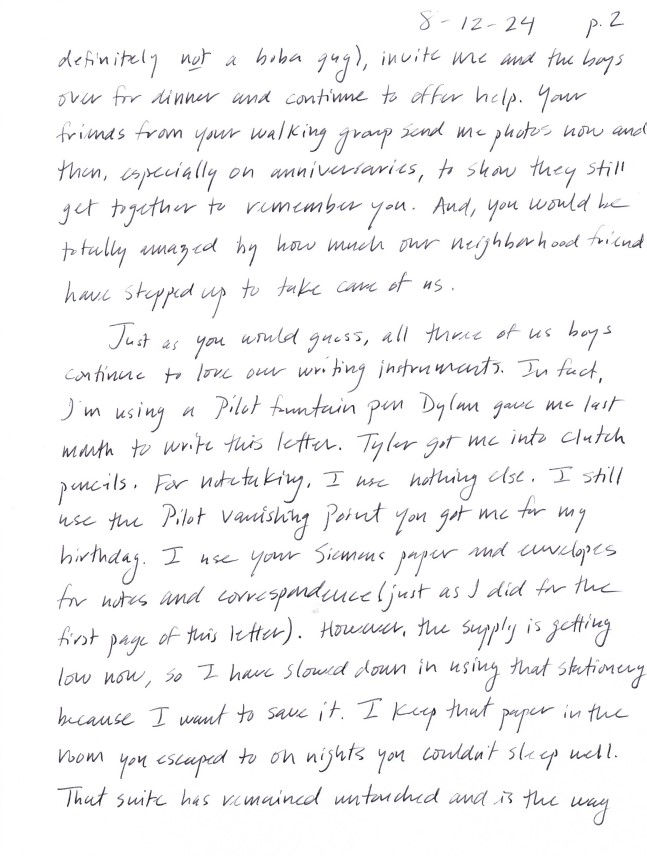 8-12-24 p.2
definitely not a boba guy), invite me and the boys
over for dinner and continue to offer help. Your
friends from your walking group send me photos now and
then, especially on anniversaries, to show they still
get together to remember you. And, you would be
totally amazed by how much our neighborhood friend
have stepped up to take care of us.
Just as you would guess, all three of us boys
continue to love our writing instruments. In fact,
I'm using a Pilot fountain pen Dylan gave me last
month to write this letter. Tyler got me into clutch
pencils. For notetaking, I use nothing else. I still
use the Pilot Vanishing Point you got me for my
birthday. I use your Siemens paper and envelopes
for notes and correspondence (just as I did for the
first page of this letter). However, the supply is getting
low now, so I have slowed down in using that stationery
because I want to save it. I keep that paper in the
room you escaped to on nights you couldn't sleep well.
That suite has remained untouched and is the way